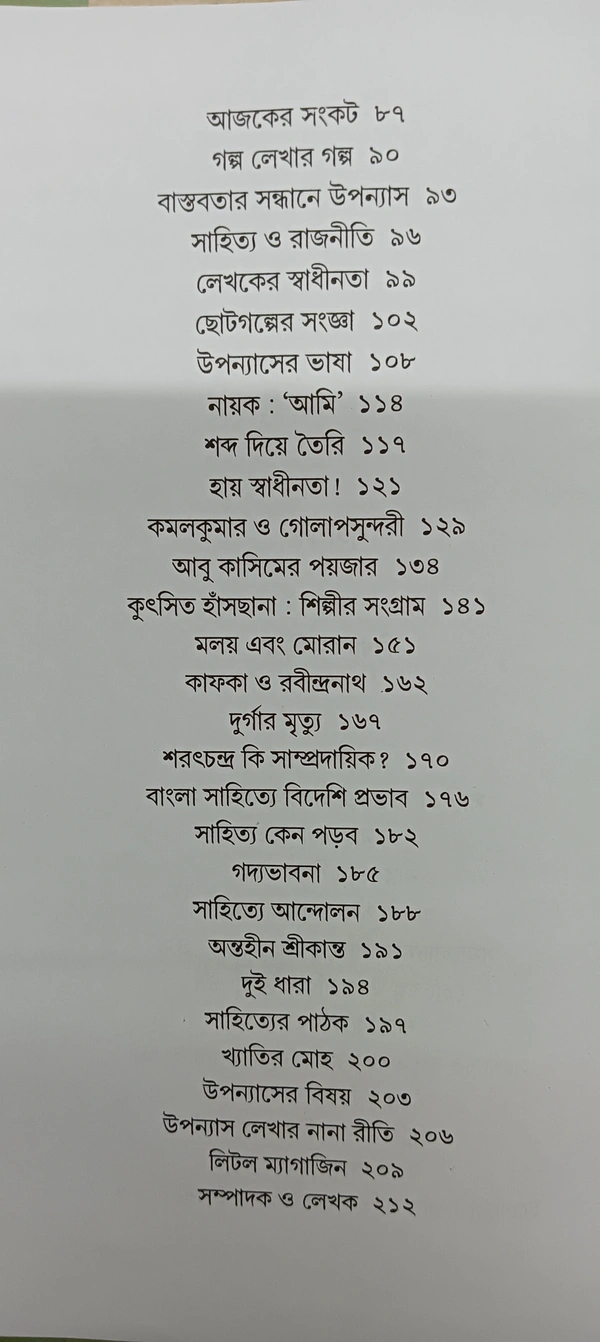 আজকের সংকট ৮৭
গল্প লেখার গল্প ৯০
বাস্তবতার সন্ধানে উপন্যাস ৯৩
সাহিত্য ও রাজনীতি ৯৬
লেখকের স্বাধীনতা ৯৯
ছোটগল্পের সংজ্ঞা ১০২
উপন্যাসের ভাষা ১০৮
নায়ক : ‘আমি’ ১১৪
শব্দ দিয়ে তৈরি ১১৭
হায় স্বাধীনতা! ১২১
কমলকুমার ও গোলাপসুন্দরী ১২৯
আবু কাসিমের পয়জার ১৩৪
কুৎসিত হাঁসছানা : শিল্পীর সংগ্রাম ১৪১
মলয় এবং মোরান ১৫১
কাফকা ও রবীন্দ্রনাথ ১৬২
দুর্গার মৃত্যু ১৬৭
শরৎচন্দ্র কি সাম্প্রদায়িক? ১৭০
বাংলা সাহিত্যে বিদেশি প্রভাব ১৭৬
সাহিত্য কেন পড়ব ১৮২
গদ্যভাবনা ১৮৫
সাহিত্যে আন্দোলন ১৮৮
অন্তহীন শ্রীকান্ত ১৯১
দুই ধারা ১৯৪
সাহিত্যের পাঠক ১৯৭
খ্যাতির মোহ ২০০
উপন্যাসের বিষয় ২০৩
উপন্যাস লেখার নানা রীতি ২০৬
লিটল ম্যাগাজিন ২০৯
সম্পাদক ও লেখক ২১২